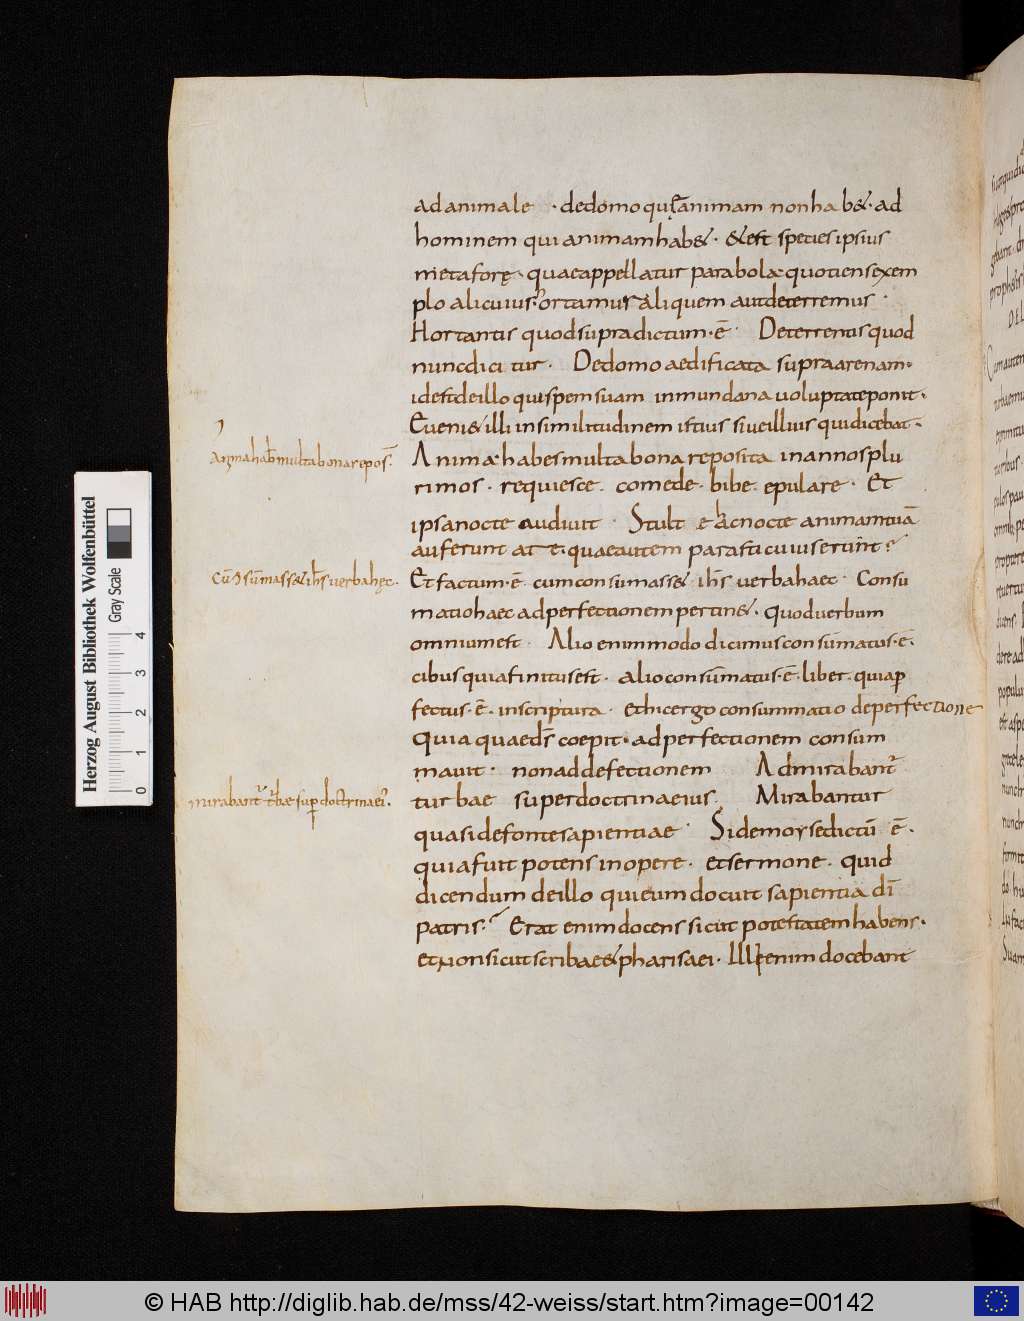 ad animale · dedomo quę animam non habet · ad
hominem qui animam habet · & est species ipsius
metaforę · quae appellatur parabola · quotiens exem
plo alicuius ortamur aliquem aut deterremus ·
Hortantis quod supra dictum · ē · Deterrentis quod
nunc dicitur · De domo aedificata supra arenam ·
id est de illo qui spem suam in mundana uoluptate ponit ·
Euen& illi in similitudinem istius siue illius qui dicebat ·
Anima habes multa bona reposita in annos plu
rimos · requiesce · comede · bibe · epulare · Et
ipsa nocte audiuit · Stult e hac nocte animam tuā
auferunt a te · quae autem parasti cuius erunt ?
Et factum · ē · cum consumass& · ih̄s uerba haec · Consu
matio haec ad perfectionem pertin& · quod uerbum
omnium est · Alio enim modo dicimus consūmatus · ē ·
cibus quia finitus est · alio consūmatus · ē · liber · quia ꝑ
fectus · ē · inscriptura · et hic ergo consummatio de perfectione
quia quae dn̄s coepit · ad perfectionem consum
mauit · non ad defectionem Admirabant᷑
turbae super doctrina eius · Mirabantur
quasi de fonte sapientiae · Si de moyse dictū ē ·
quia fuit potens in opere · et sermone · quid
dicendum de illo qui eum docuit sapientia dī
patris · Erat enim docens sicut potestatem habens ·
et non sicut scribae & pharisaei · Illi enim docebant
Anima hab̄ multa bona repos̄
Cū ↄsūmass& ih̄s uerba hęc ·
mirabant᷑ t᷑bae sup doctrina ei᷑
Herzog August Bibliothek Wolfenbüttel
Gray Scale
0 1 2 3 4
© HAB http://diglib.hab.de/mss/42-weiss/start.htm?image=00142